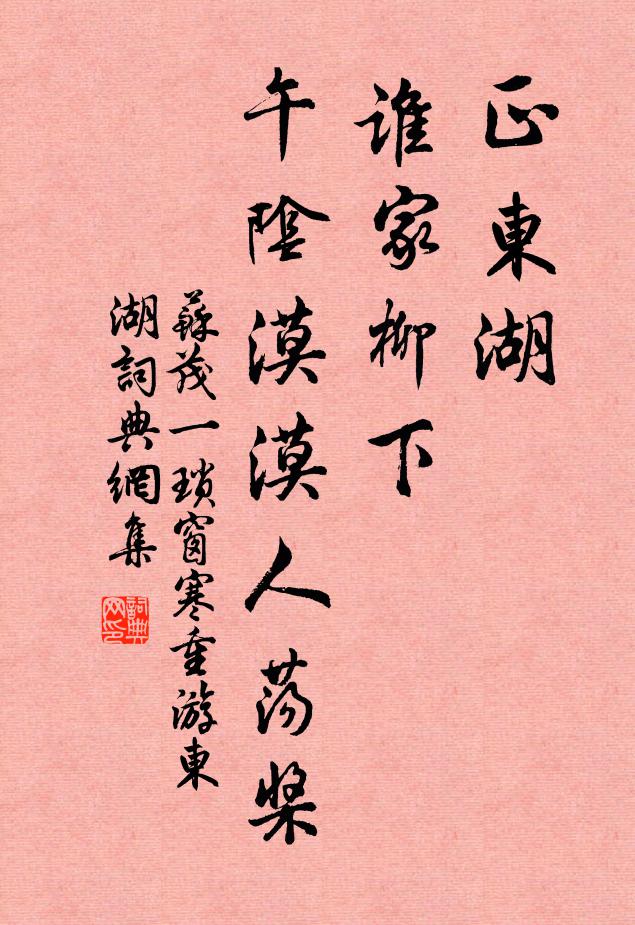 正東湖
誰家柳下
午陰漠漠人荡槳
蘇茂一瑣窗寒重游東
湖詞典網集
詞典网印